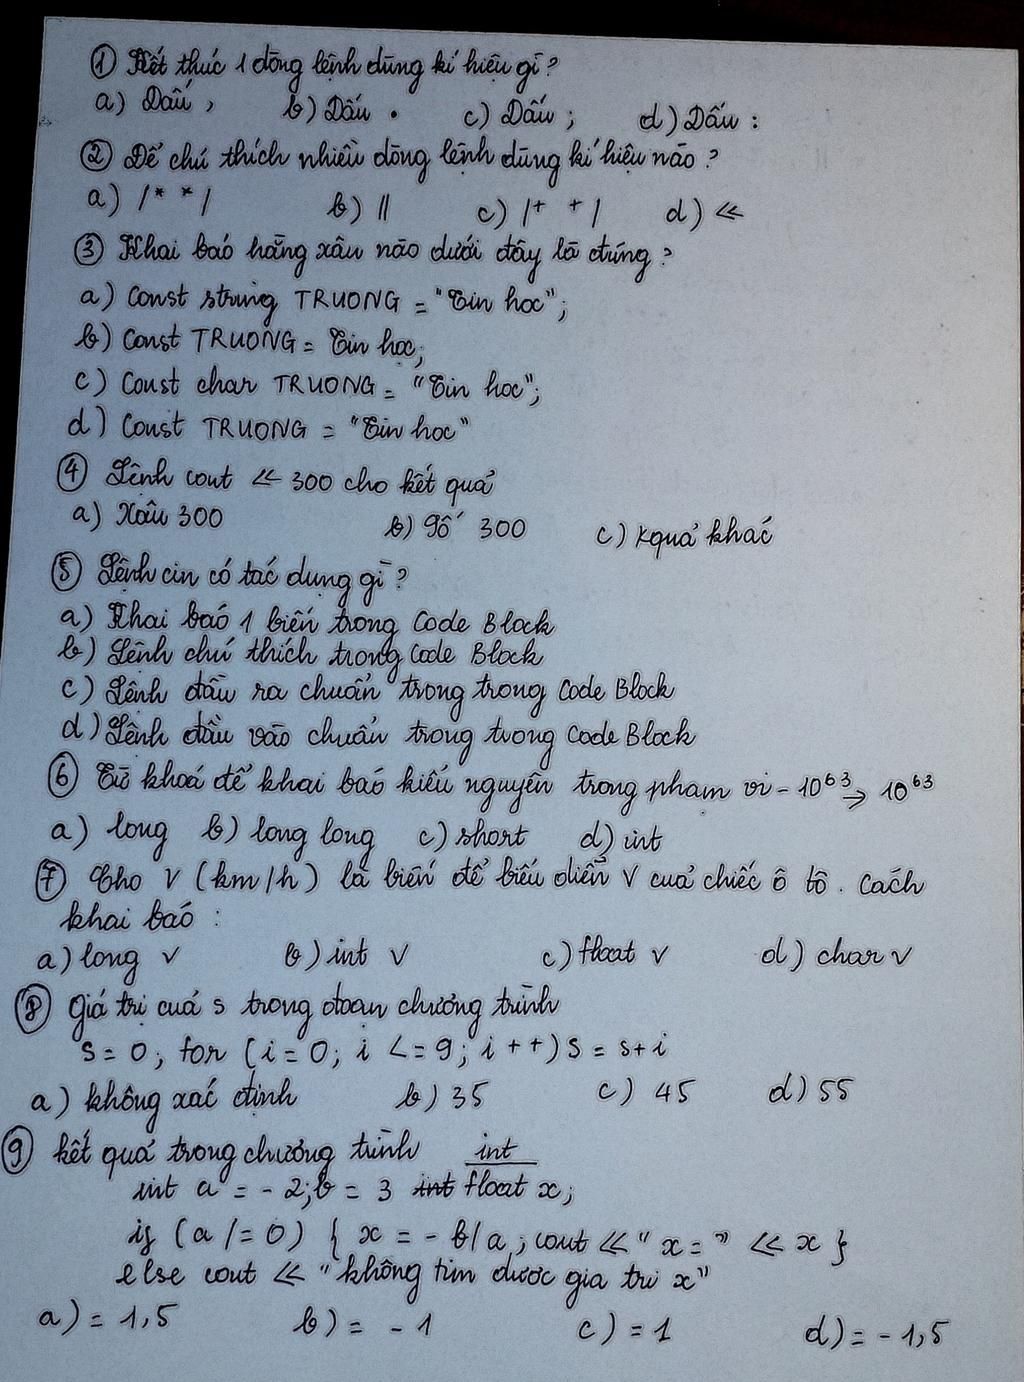 ① Kết thúc 1 dòng lệnh dùng kí hiệu gì?
a) Dấu , b) Dấu . c) Dấu ; d) Dấu :
② Để chú thích nhiều dòng lệnh dùng kí hiệu nào?
a) /* */ b) // c) /+ +/ d) <<
③ Khai báo hằng xâu nào dưới đây là đúng?
a) Const string TRUONG = "Tin hoc";
b) Const TRUONG = Tin hoc;
c) Const char TRUONG = "Tin hoc";
d) Const TRUONG = "Tin hoc"
④ Lệnh cout << 300 cho kết quả
a) Xâu 300 b) Số 300 c) Kquả khác
⑤ Lệnh cin có tác dụng gì?
a) Khai báo 1 biến trong Code Block
b) Lệnh chú thích trong Code Block
c) Lệnh đầu ra chuẩn trong trong Code Block
d) Lệnh đầu vào chuẩn trong trong Code Block
⑥ Từ khoá để khai báo kiểu nguyên trong phạm vi -10⁶³ → 10⁶³
a) long b) long long c) short d) int
⑦ Cho V (km/h) là biến để biểu diễn V của chiếc ô tô. Cách
khai báo :
a) long v b) int v c) float v d) char v
⑧ Giá trị của s trong đoạn chương trình
s = 0; for (i = 0; i <= 9; i ++) s = s + i
a) không xác định b) 35 c) 45 d) 55
⑨ kết quả trong chương trình int
int a = - 2; b = 3 int float x;
if (a != 0) { x = - b/a ; cout << " x = " << x }
else cout << "không tim được gia tri x"
a) = 1,5 b) = - 1 c) = 1 d) = - 1,5